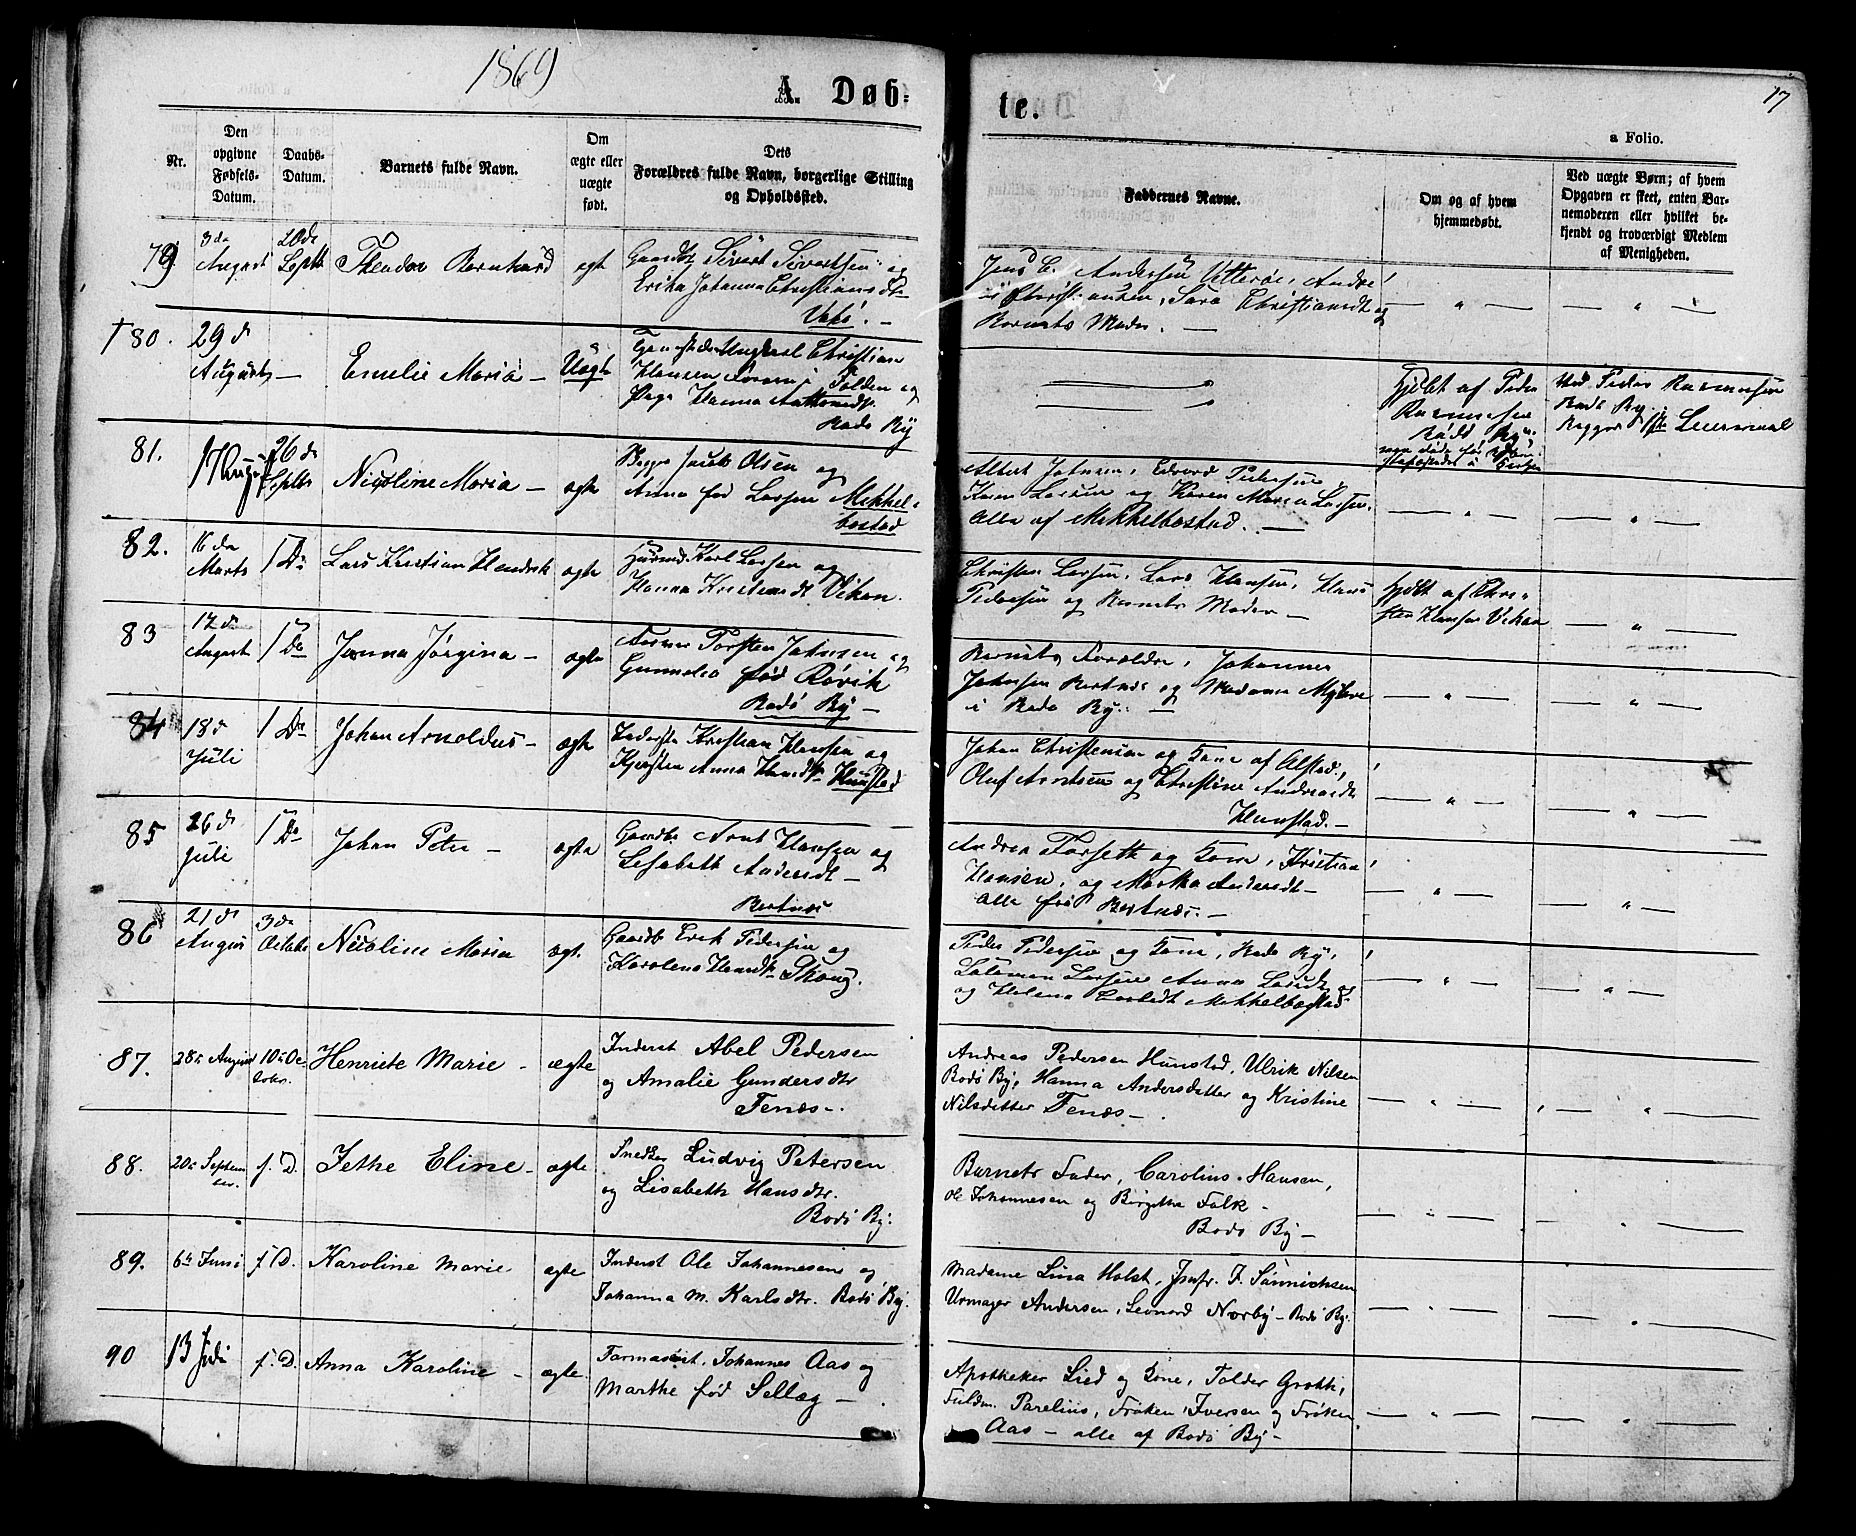 1869
A. Døb-
te.
17
a Folio.
Nr.
Den opgivne Fødsels-Datum.
Daabs-Datum.
Barnets fulde Navn.
Om ægte eller uægte født.
Dets Forældres fulde Navn, borgerlige Stilling og Opholdssted.
Faddernes Navne.
Om og af hvem hjemmedøbt.
Ved uægte Børn; af hvem Opgaven er skeet, enten Barnemoderen eller hvilket bekjendt og troværdigt Medlem af Menigheden.
79
3de August
Septb
Theodor Bernhard
egt
Sivert Sivertsen og
Erika Johanna Christiansdt
Jens C. Andersen
Sara Christiansdt og
Barnets Moder. —
— " —
— " —
† 80.
29 de
August —
Emelie Maria —
Uægte
Christian
Hansen
Folden og
Pige Hanna
Bodø By
Hjdbt af Peder
Rasmussen
Bodø By
Ved Peder Rasmussen
Bodø By
81.
17 August
26 de
Septbr
Nicoline Maria —
egte
Jacob Olsen og
Anna fød Larsen Mikkel-
bostad
Albert Johnsen, Edvard Pedersen,
Karen Larsen og Karen Maria Larsen.
Alle af Mikkelbostad. —
— " —
— " —
82.
16 de
Marts
1 Do
Lars Kristian Hendrik
egte
Husmd Karl Larsen og
Hanna Kristensdt Vikan.
Christen Larsen, Lars Hansen, Hans
Pedersen og Barnets Moder —
Hjdbt af Chri-
sten Hansen Vikan
— " —
83
12 de
August
1 Do
Jonna Jørgina —
egte
Torsten Johnsen og
Gunnelia fød Rørvik
Bodø By —
Barnets Forældre, Johannes
Johnsen Bertnes og Madame Myhre
i Bodø By. —
— " —
— " —
84
18 d
Juli
1 Do
Johan Arnoldus —
ægte
Inderste Kristian Hansen og
Kjersten Anna Hansdt Hunstad
Johan Christensen og Kone af Alstad,
Oluf Arntsen og Christine Andreasdt
Hunstad. —
— " —
— " —
85
26 d
Juli
1 Do
Johan Peter —
egte
Gaardbr Arnt Hansen og
Lisabeth Andersdt —
Bertnes
Andrea Forseth og Kone, Kristian
Hansen, og Martha Andersdt —
Alle fra Bertnes. —
— " —
— " —
86
21 de
August
3 de
Octobr
Nicoline Maria
egt.
Gaardb Erik Pedersen og
Karolena Hansdt Skaug.
Peder Pedersen og Kone, Bodø By,
Salamon Larsen Anna Larsdt og
og Helena Mikkelbostad
— " —
— " —
87.
28de August
10de Oc-
tober.
Henriete Marie —
ægte
Inderst Abel Pedersen
og Amalie Gundersdtr
Fenæs —.
Andreas Pedersen Hunstad, Ulrik Nilsen
Bodø By, Hanna Andersdatter og Kristine
Nilsdatter Fenæs —.
— " —
— " —
88.
20de Septem
ber.
s. D.
Jethe Eline —
ægte
Snedker Ludvig Petersen
og Lisabeth Hansdtr.
Bodø By.
Barnets Fader, Carolius Hansen,
Ole Johannesen og Birgithe Falk —
Bodø By —
— " —
— " —
89.
6te Juni
s. D.
Karoline Marie
ægte
Inderst Ole Johannesen og
Johanna M. Karlsdtr. Bodø By.
Madame Lina Holst, Jmfr. J. Sønnichsen
Urmager Andersen, Leonard Norby — Bodø By.
— " —
— " —
90
13 Juli
s. D.
Anna Karoline —
ægte
Farmaseut. Johannes Aas og
Marthe fød Sellæg —
Apotheker Lied og Kone, Tolder Grøtti,
Fuldm. Parelius, Frøken Iversen og Frøken
Aas — alle af Bodø By —
— " —
— " —